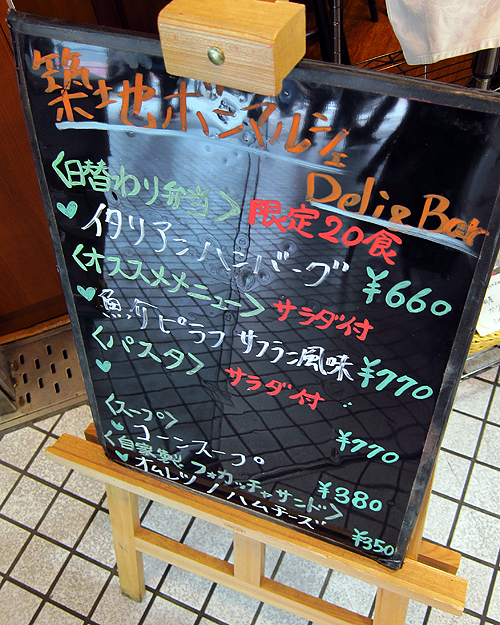 築地ボンマルシェ
Deli & Bar
<日替わり弁当> 限定20食
♥ イタリアンハンバーグ ¥660
<オススメメニュー> サラダ付
♥ 魚介ピラフ サフラン風味 ¥770
<パスタ> サラダ付
♥ ¥770
<スープ>
♥ コーンスープ ¥380
<自家製 フォカッチャサンド>
♥ オムレツ / ハムチーズ ¥350